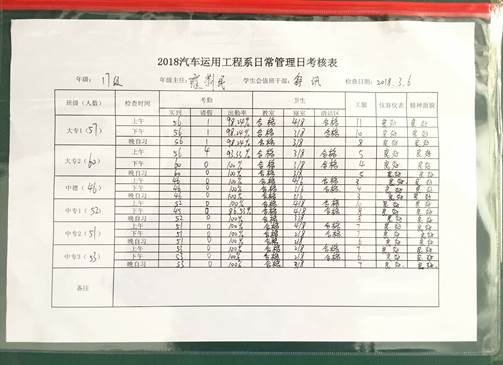 2018汽车运用工程系日常管理日考核表
年级：17级 年级主任： 学生会值班干部： 检查日期：2018.3.6
班级（人数） 检查时间 考勤 卫生 工服 仪容仪表 精神面貌
实到 请假 出勤率 教室 寝室 清洁区
大专1（57） 上午 56 1 98.24% 合格 4/8 合格 11 良好 良好
下午 56 1 98.24% 合格 1/8 合格 10 良好 良好
晚自习 56 1 98.24% 合格 3/8 合格 8 良好 良好
大专2（60） 上午 56 4 93.33% 合格 1/8 合格 5 良好 良好
下午 60 0 100% 合格 1/8 合格 4 良好 良好
晚自习 60 0 100% 合格 5 良好 良好
中德（46） 上午 46 0 100% 合格 合格 良好 良好
下午 46 0 100% 合格 良好 良好
晚自习 46 0 100% 合格 良好 良好
中专1（52） 上午 52 0 100% 合格 4/8 合格 良好 良好
下午 45 合格 4/8 合格 8 良好 良好
晚自习 52 0 100% 合格 3/8 良好 良好
中专2（51） 上午 51 0 100% 合格 4/8 合格 7 良好 良好
下午 51 0 100% 合格 7 良好 良好
晚自习 51 0 100% 合格 6 良好 良好
中专3（53） 上午 53 0 100% 合格 合格 良好 良好
下午 53 0 100% 合格 2/8 合格 6 良好 良好
晚自习 53 0 100% 合格 2/8 7 良好 良好
备注